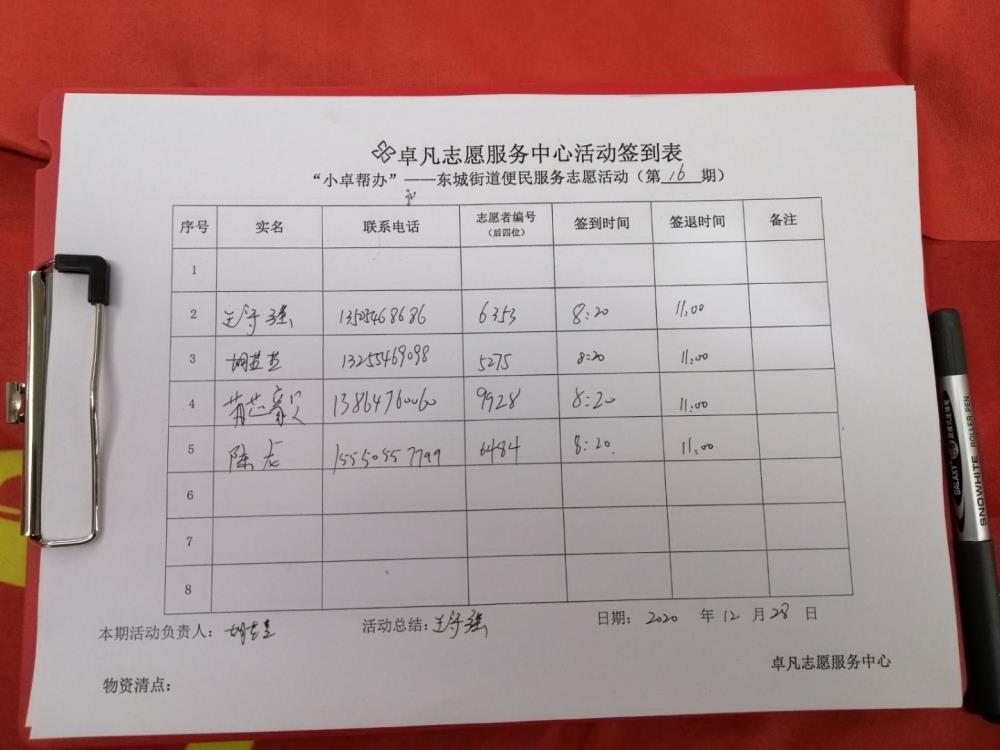 卓凡志愿服务中心活动签到表
“小卓帮办”——东城街道便民服务志愿活动（第16期）
序号 实名 联系电话 志愿者编号（后四位） 签到时间 签退时间 备注
1
2 王守强 13505468686 6353 8:20 11:00
3 13255469098 5275 8:20 11:00
4 13864760060 9928 8:20 11:00
5 陈龙 15550557799 6484 8:20 11:00
6
7
8
本期活动负责人： 活动总结：王守强 日期：2020 年 12 月 28 日
卓凡志愿服务中心
物资清点：
GALAXY SNOWHITE ROLLER PEN